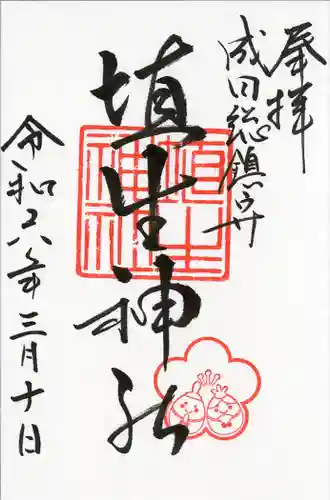 奉拝
成田総鎮守
埴生神社
埴生神社
令和六年三月十日